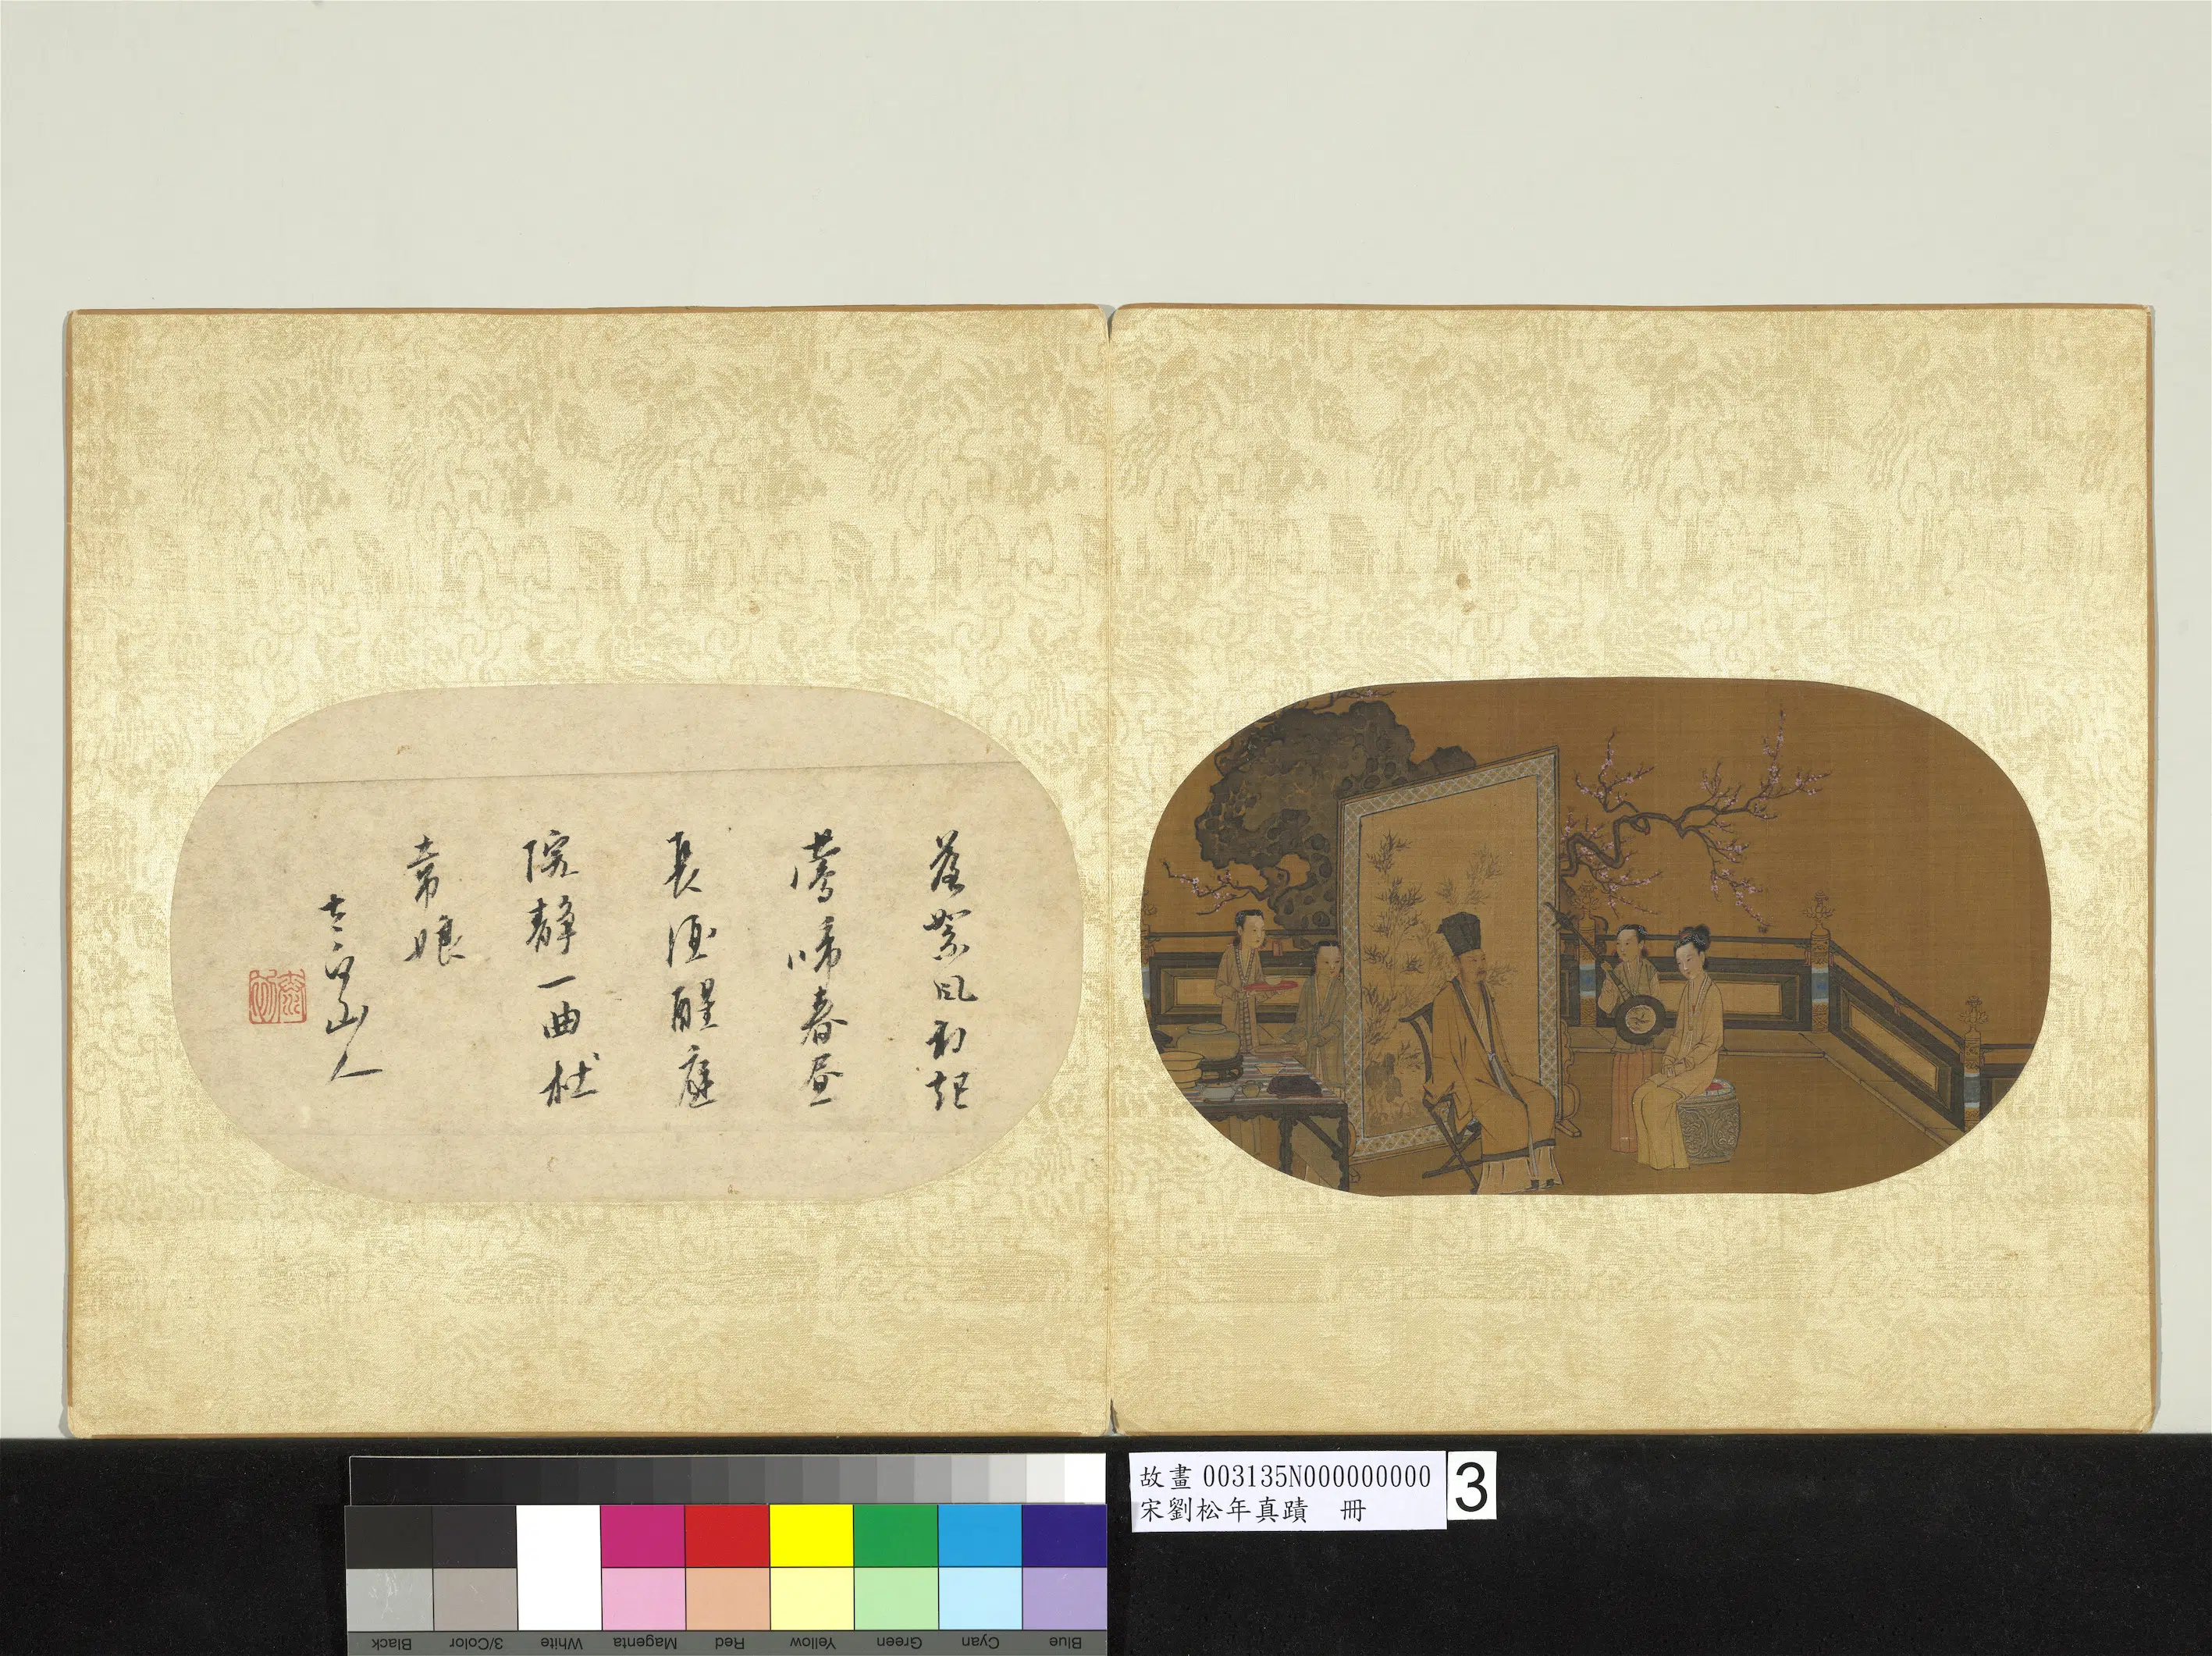 落絮風初起
鶯啼春晝
長酒醒庭
院靜一曲杜
韋娘
太白山人
故畫 003135N000000000
宋劉松年真蹟 冊
3
Blue Cyan Green Yellow Red Magenta White 3/Color Black